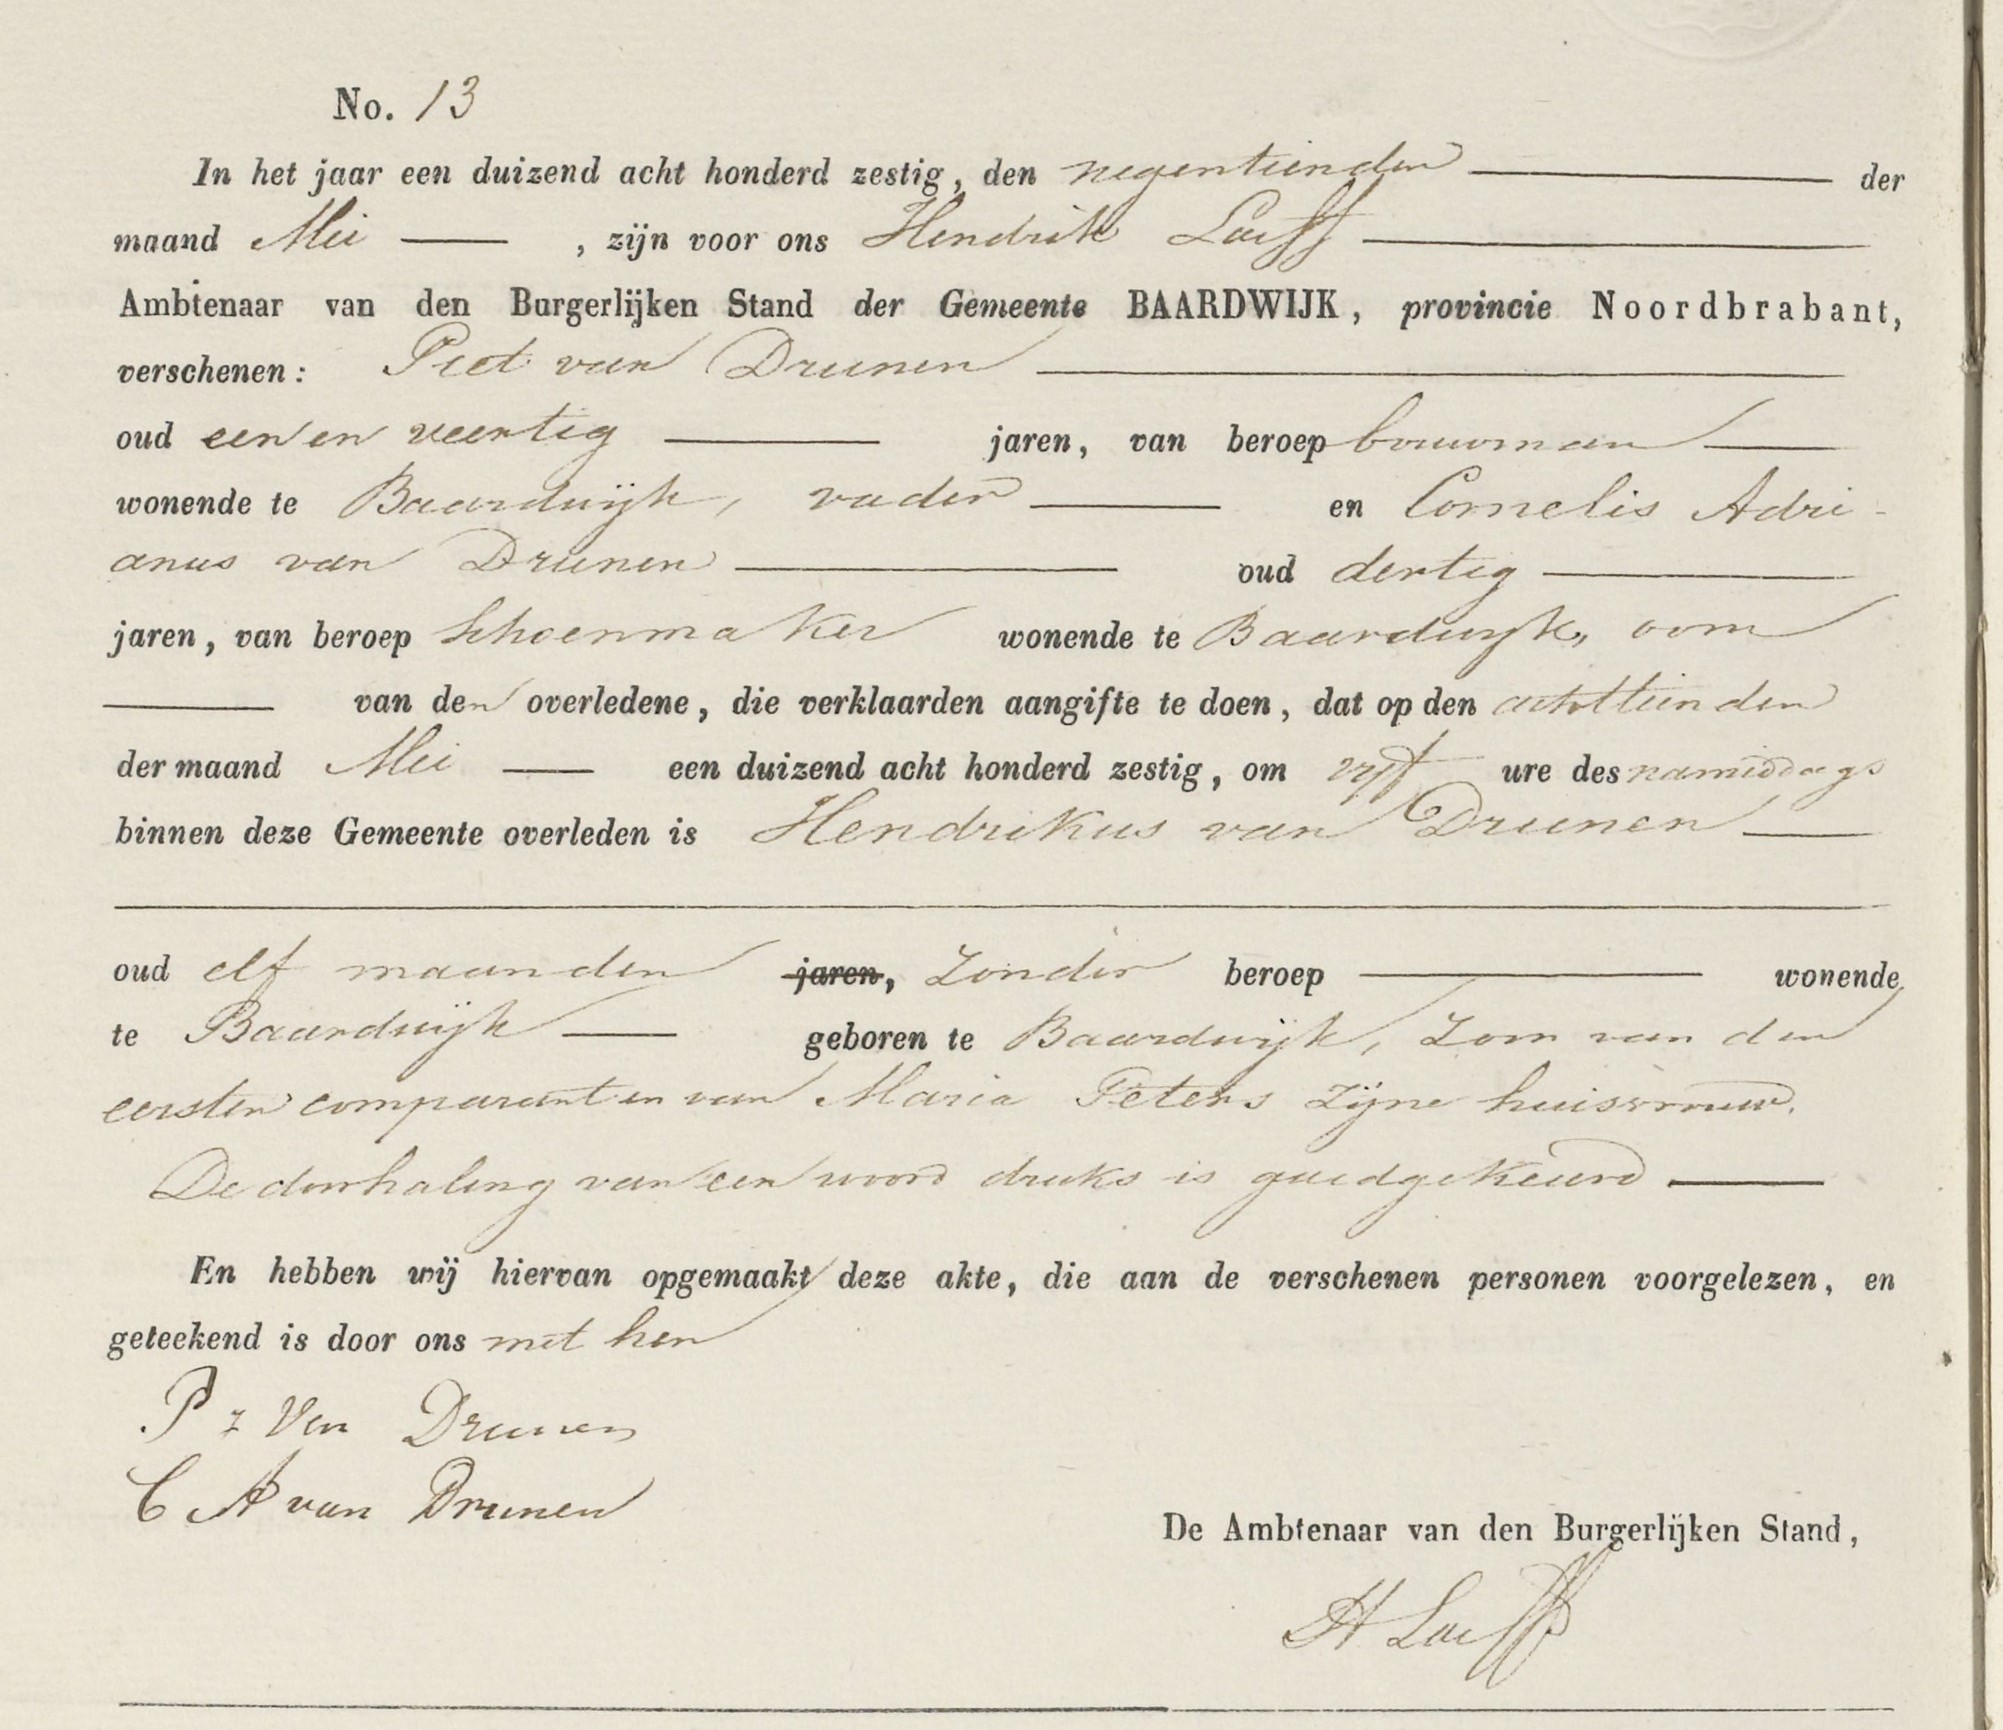 No. 13
In het jaar een duizend acht honderd zestig, den negentienden der
maand Mei , zijn voor ons Hendrik Loeff
Ambtenaar van den Burgerlijken Stand der Gemeente BAARDWIJK, provincie Noordbrabant,
verschenen: Piet van Drunen
oud een en veertig jaren, van beroep bouwman
wonende te Baardwijk, vader en Cornelis Adri-
anus van Drunen oud dertig
jaren, van beroep schoenmaker wonende te Baardwijk, oom
van den overledene, die verklaarden aangifte te doen, dat op den achttienden
der maand Mei een duizend acht honderd zestig, om vijf ure des namiddags
binnen deze Gemeente overleden is Hendrikus van Drunen
oud elf maanden jaren, zonder beroep wonende
te Baardwijk geboren te Baardwijk, zoon van den
eersten comparant en van Maria Peters zijne huisvrouw.
De doorhaling van een woord druks is goedgekeurd
En hebben wij hiervan opgemaakt deze akte, die aan de verschenen personen voorgelezen, en
geteekend is door ons met hen
P z Van Drunen
C A van Drunen
De Ambtenaar van den Burgerlijken Stand,
H Loeff